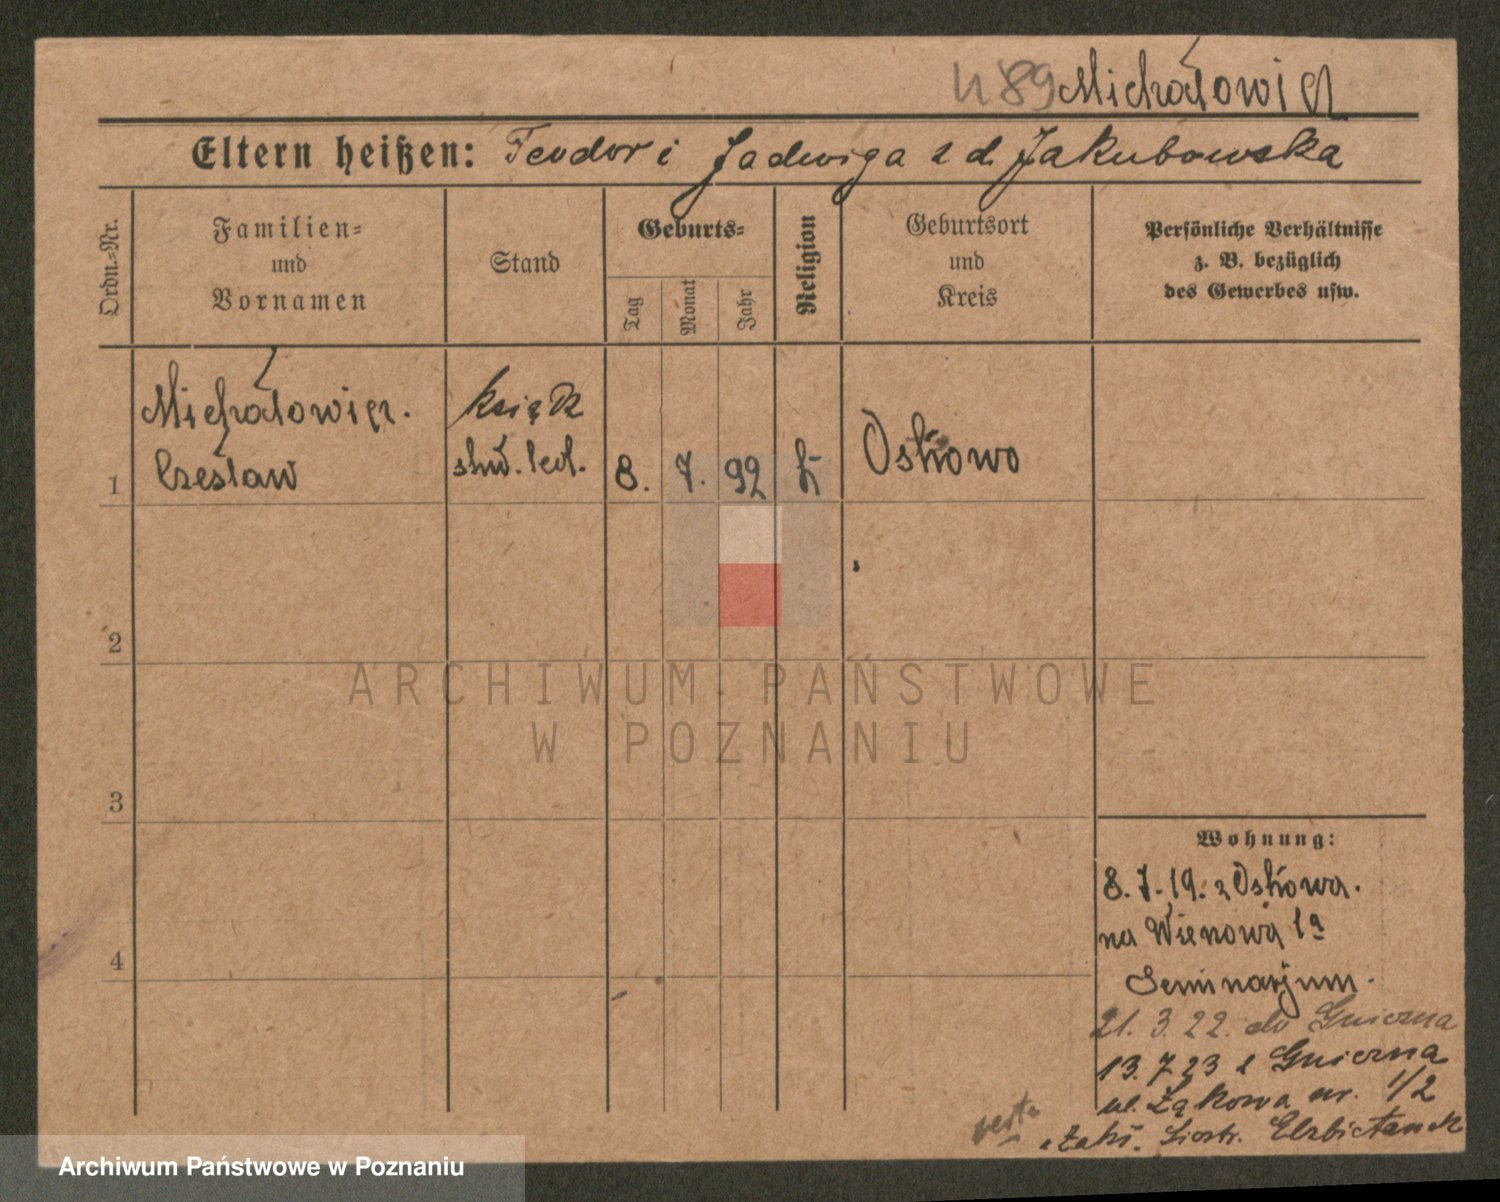 489 Michałowicz
Eltern heißen: Teodor i Jadwiga z d. Jakubowska
Ordn.=Nr.
Familien=
und
Vornamen
Stand
Geburts=
Tag
Monat
Jahr
Religion
Geburtsort
und
Kreis
Persönliche Verhältnisse
z. B. bezüglich
des Gewerbes usw.
1
Michałowicz.
Czesław
ksiądz
8. 7. 92 k
2
3
4
Wohnung:
8. 7. 19. z
na 1a
Seminarjum.
21. 3. 22. do Gniezna
13. 7 23 z Gniezna
ul. Łąkowa nr. 1/2
Zakł. Siostr. Elżbietanek
ARCHIWUM PAŃSTWOWE
W POZNANIU
Archiwum Państwowe w Poznaniu